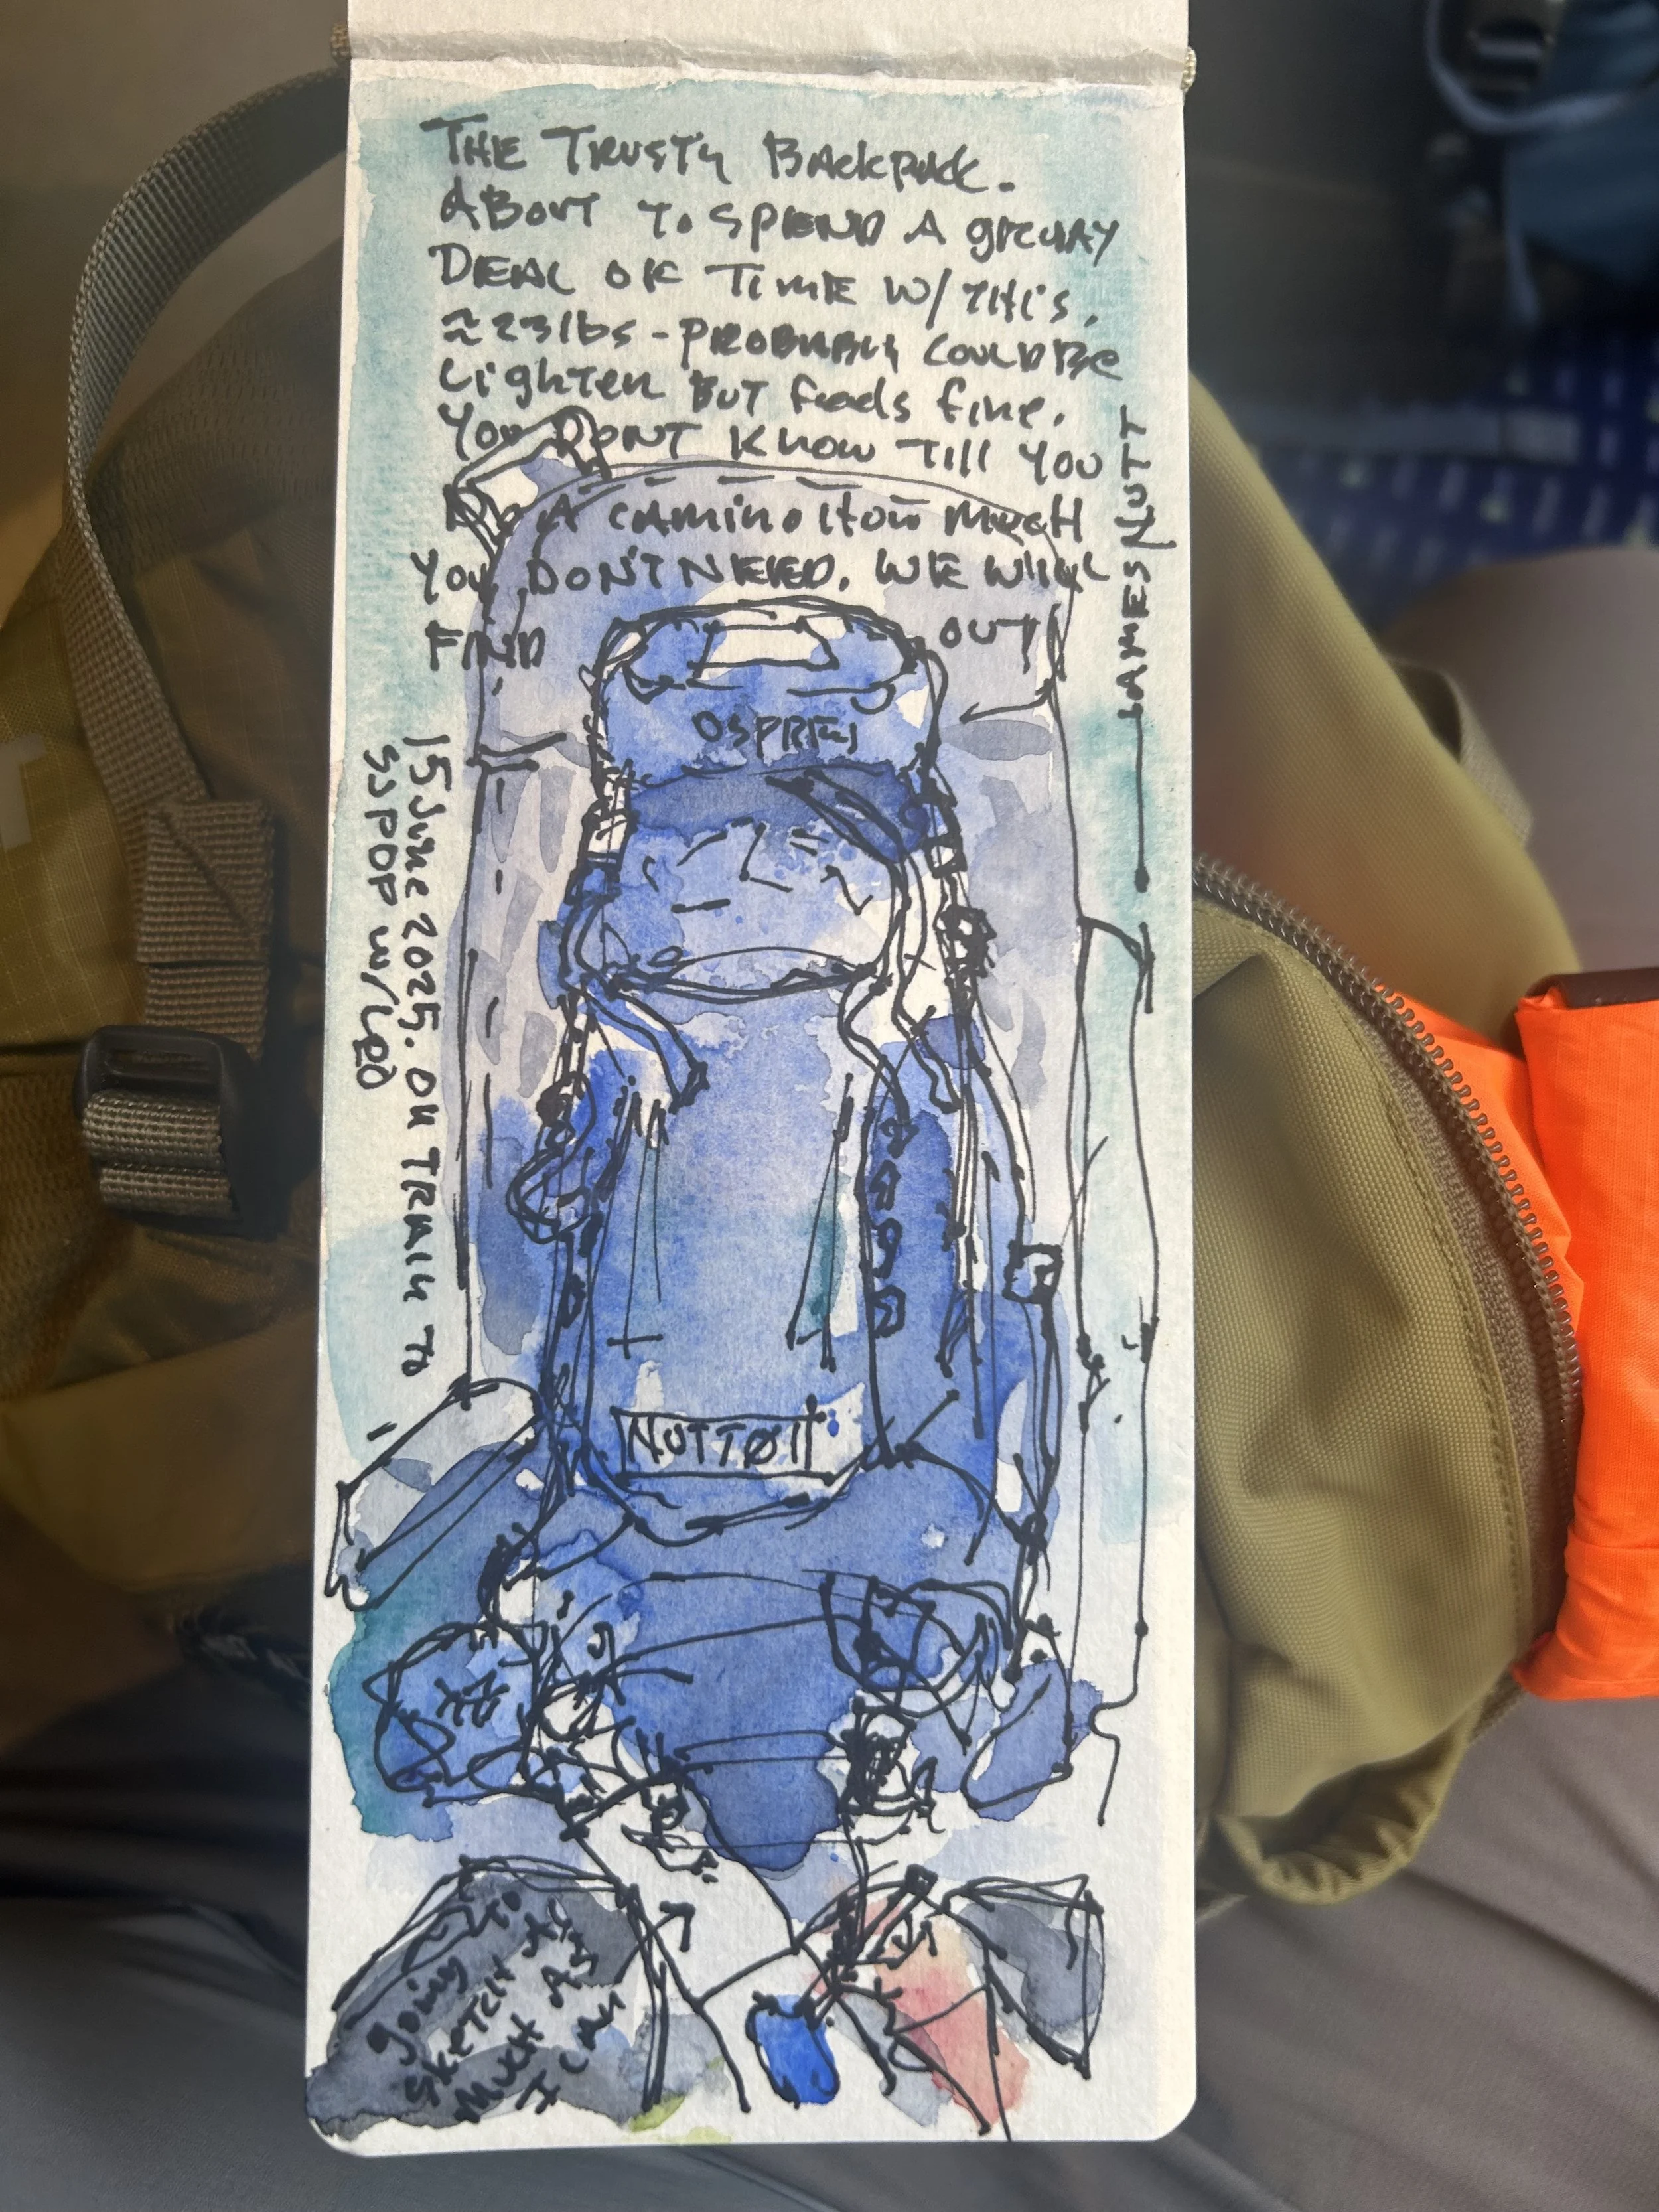 THE TRUSTY BACKPACK.
ABOUT TO SPEND A
DEAL OF TIME W/ THIS.
≈23lbs - PROBABLY COULD BE
LIGHTER BUT feels fine.
YOU DONT KNOW TILL YOU
A CAMINO HOW MUCH
YOU DON'T NEED. WE WILL
FIND OUT!
JAMES NUTT
OSPREY
15 June 2025. ON TRAIN TO
SSPDP w/
NUTTØ11
going to
SKETCH AS
MUCH AS
I CAN